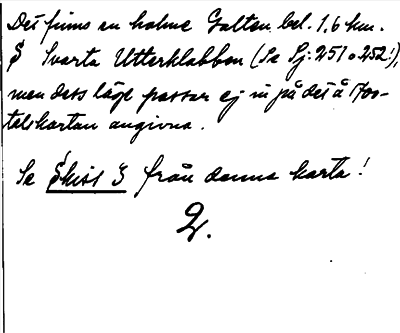 Det finns en holme Galten bel. 1.6 km.
S Svarta Utterklabben (Se Sj: 251 o 252!),
men dets läge passar ej in på det å 1700-
talskartan angivna.
Se Skiss 3 från denna karta!
2.